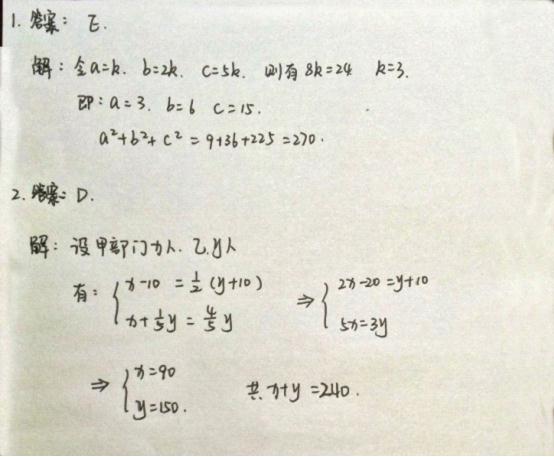 1. 答案: E.
解: 令a=k. b=2k. c=5k. 则有 8k=24 k=3.
即: a=3. b=6 c=15.
a²+b²+c²=9+36+225=270.
2. 答案: D.
解: 设甲部门x人. 乙y人
有: { x-10 = 1/2 (y+10) ⇒ { 2x-20=y+10
x+1/5y = 4/5y 5x=3y
⇒ { x=90
y=150. 共 x+y=240.